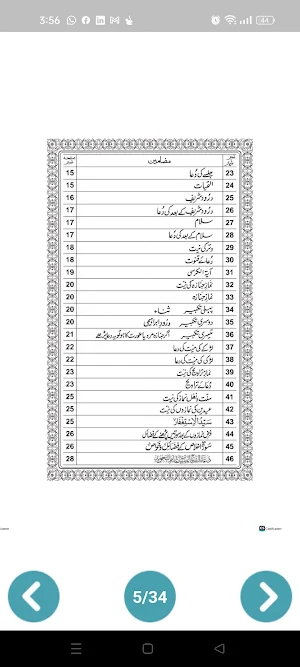 3:56
44
صفحہ نمبر مضامین نمبر شمار
15 جلسے کی دُعا 23
15 التحیات 24
16 درُود شریف 25
17 درُود شریف کے بعد کی دُعا 26
17 سلام 27
17 سلام کے بعد کی دُعا 28
18 وتر کی نیت 29
18 دُعائے قنوت 30
19 آیۃ الکرسی 31
20 نمازِ جنازہ کی نیت 32
20 نمازِ جنازہ 33
20 پہلی تکبیر ثناء 34
20 دوسری تکبیر درُودِ ابراہیمی 35
21 تیسری تکبیر 36
22 لڑکے کی میت کی دعا 37
22 لڑکی کی میت کی دعا 38
23 نمازِ تراویح کی نیت 39
23 دُعائے تراویح 40
25 سنت و نفل نماز کی نیت 41
25 عیدین کی نمازوں کی نیت 42
25 سَیِّدُ الْاِسْتِغْفَارْ 43
26 فرض نمازوں کے بعد 44
26 سورۃ اخلاص کے فضائل و خواص 45
28 46
CamScanner
5/34